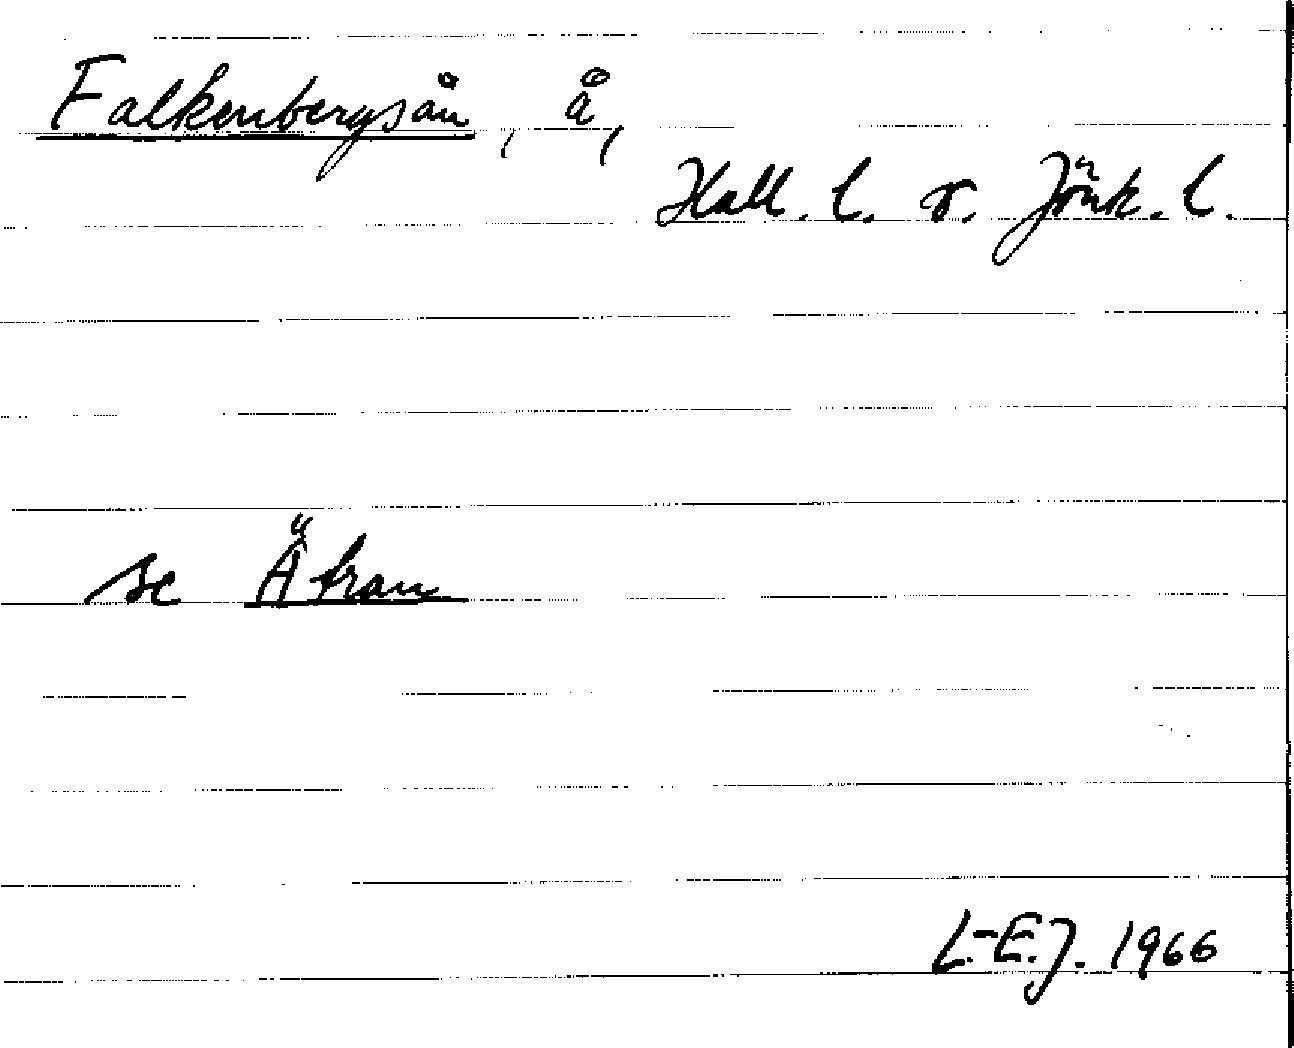 Falkenbergsån, å,
Hall. l. o. Jönk. l.
se Ätran
L-E.J. 1966